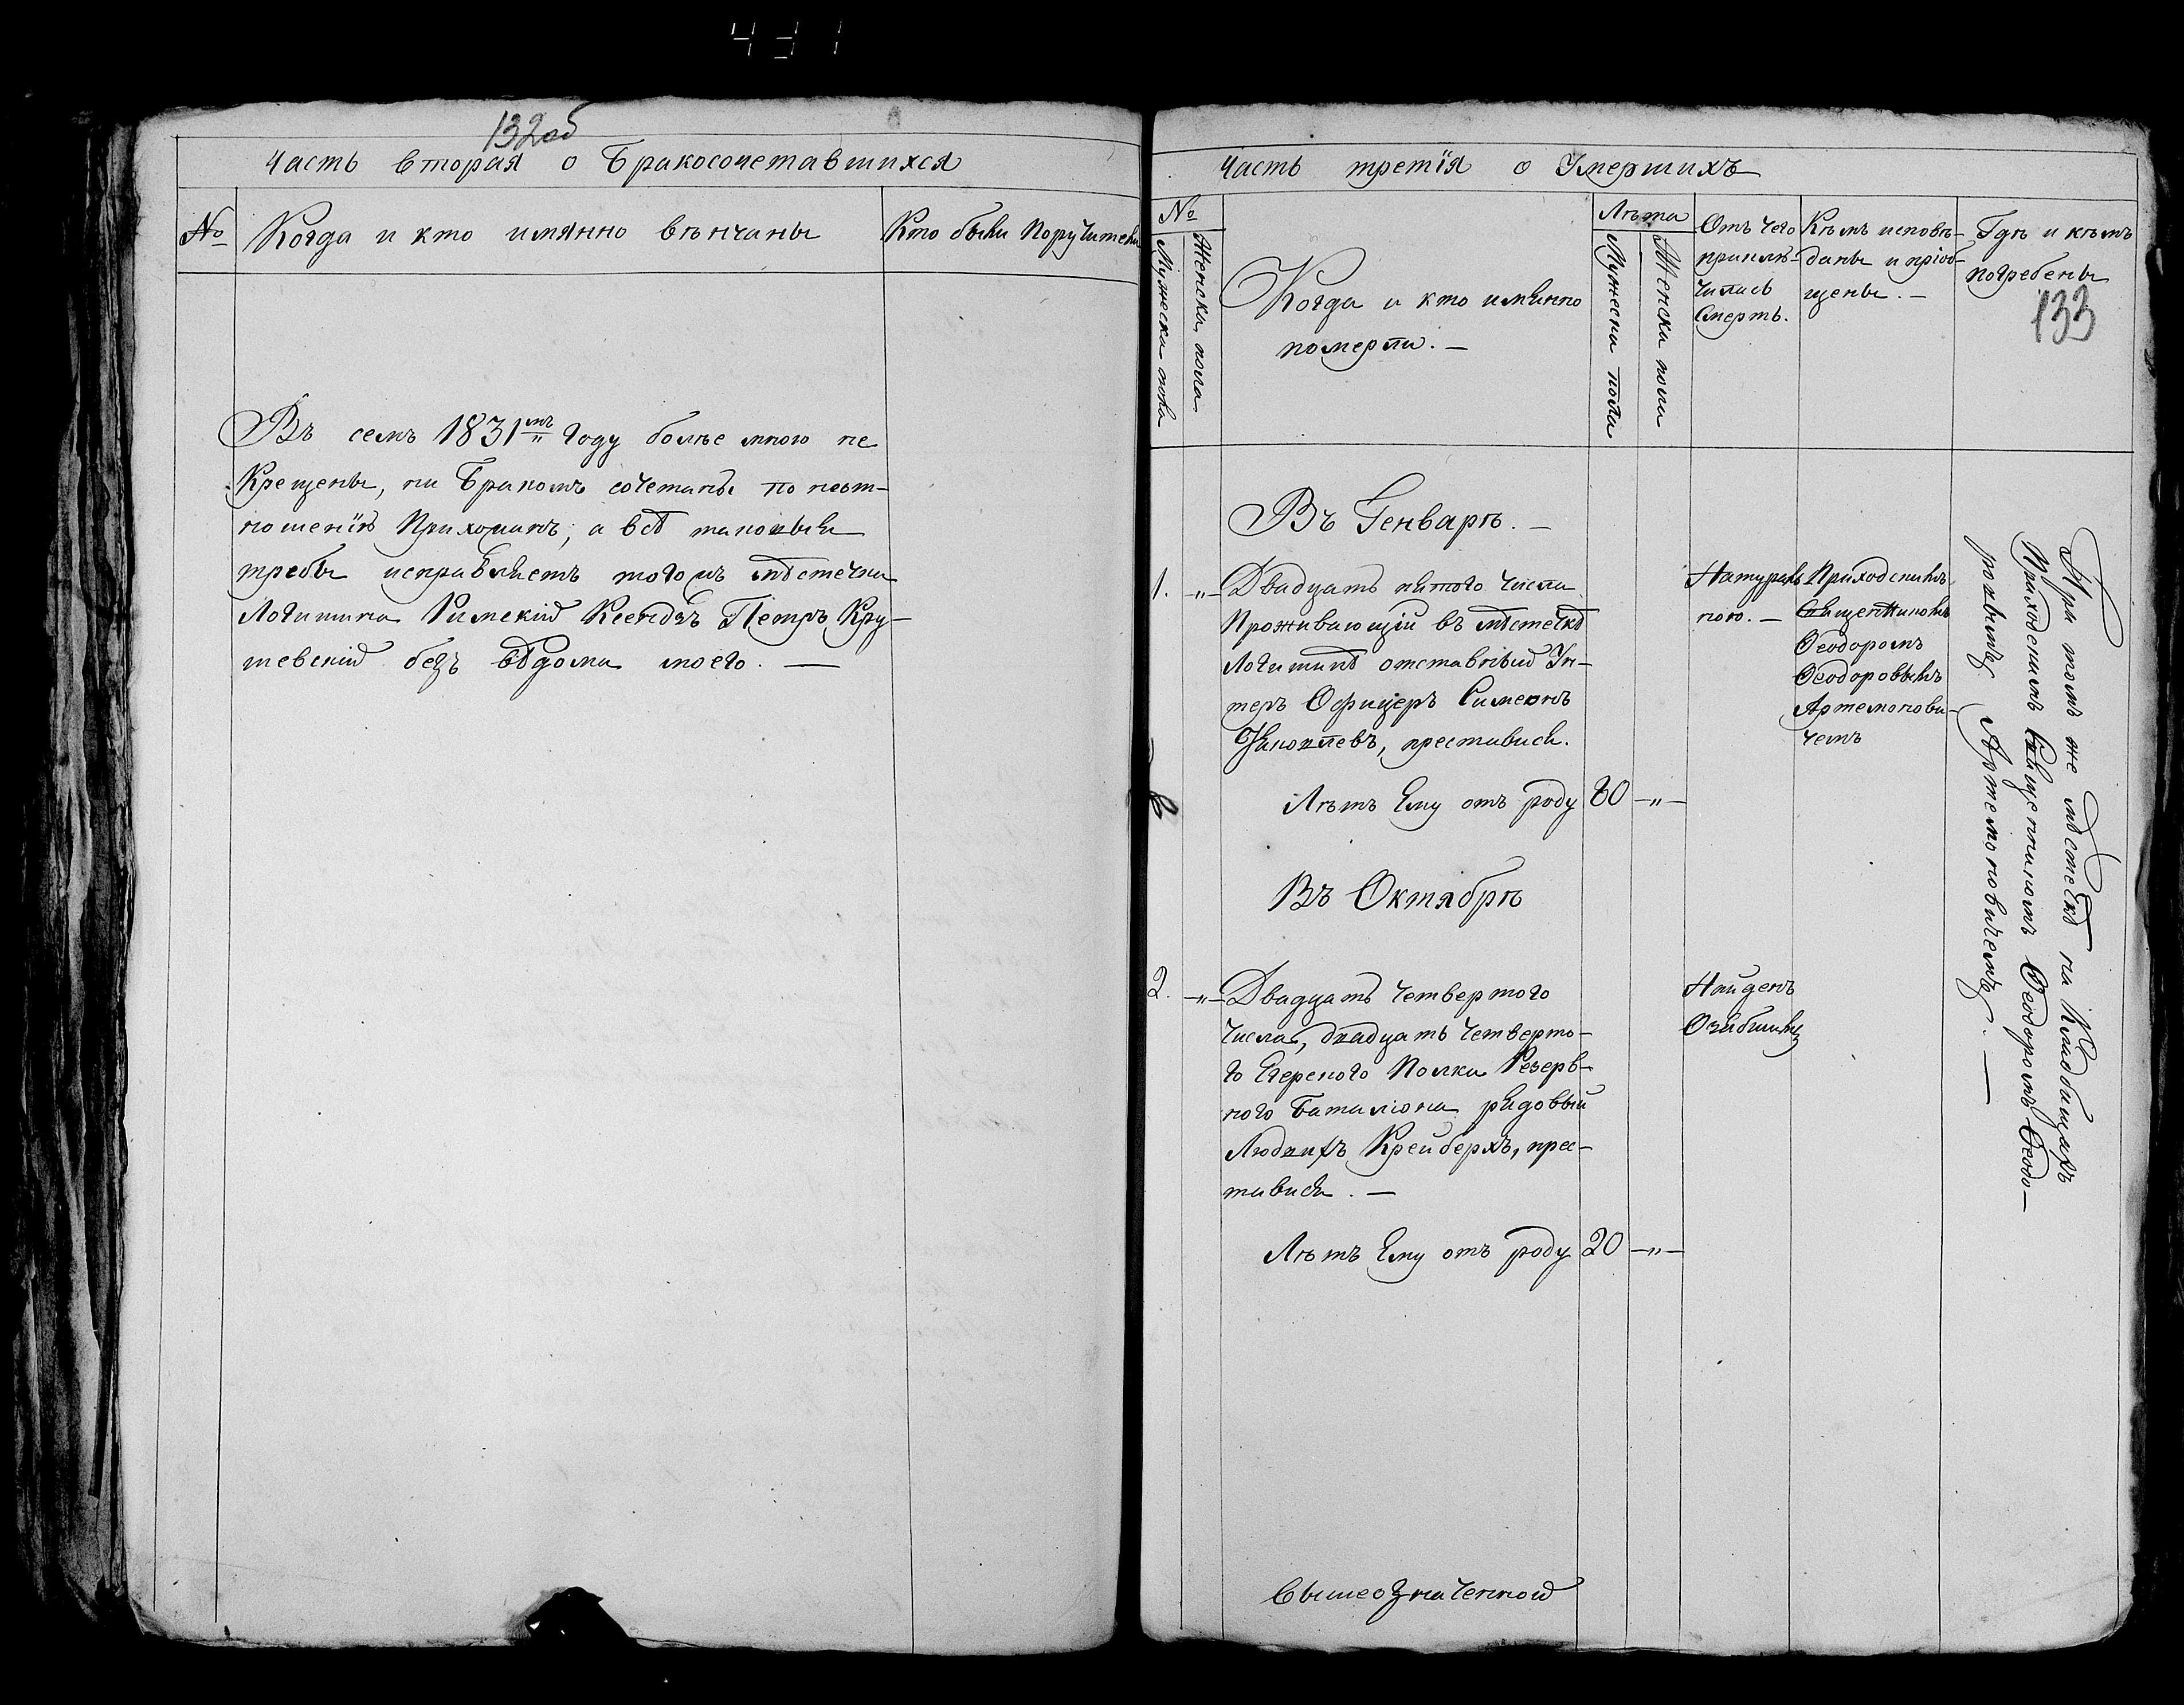 132об
Часть вторая о Бракосочетавшихся
№
Когда и кто имянно вѣнчаны
Кто были поручители
Въ семъ 1831мъ Году болѣе мною не
Крещены, ни Бракомъ сочетаны по неот-
ношенію Прихожанъ; а всѣ таковыя
требы исправляетъ того жъ мѣстечка
Логишина Римскій Ксендзъ Петръ Кру-
шевскій безъ вѣдома моего. —
Часть третія о Умершихъ
№
Мужеска пола
Женска пола
Когда и кто имянно
померли. —
Лѣта
Мужеска пола
Женска пола
Отъ чего
приклю-
чилась
Смерть.
Кѣмъ исповѣ-
даны и пріоб-
щены. —
Гдѣ и кѣмъ
погребены
133
Въ Генварѣ. —
1. —„—
Двадцать пятого числа
Проживающій въ мѣстечкѣ
Логишинѣ отставный Ун-
теръ Офицеръ Симеонъ
Яковлевъ, преставися.
Лѣтъ Ему отъ роду
80 —„—
Натураль-
ною. —
Приходскимъ
Священникомъ
Ѳеодоромъ
Ѳеодоровымъ
Артемонови-
чемъ
При томъ же мѣстечкѣ на Кладбищѣ
Приходскимъ Священникомъ Ѳеодоромъ Ѳеодо-
ровымъ Артемоновичемъ. —
Въ Октябрѣ
2. —„—
Двадцать четвертого
Числа, двадцать четверто-
го Егерского Полка Резерв-
ного Баталіона рядовый
Людвихъ Крейберхъ, прес-
тавися. —
Лѣтъ Ему отъ роду
20 —„—
Найденъ
Озябшимъ
Вышеозначенной